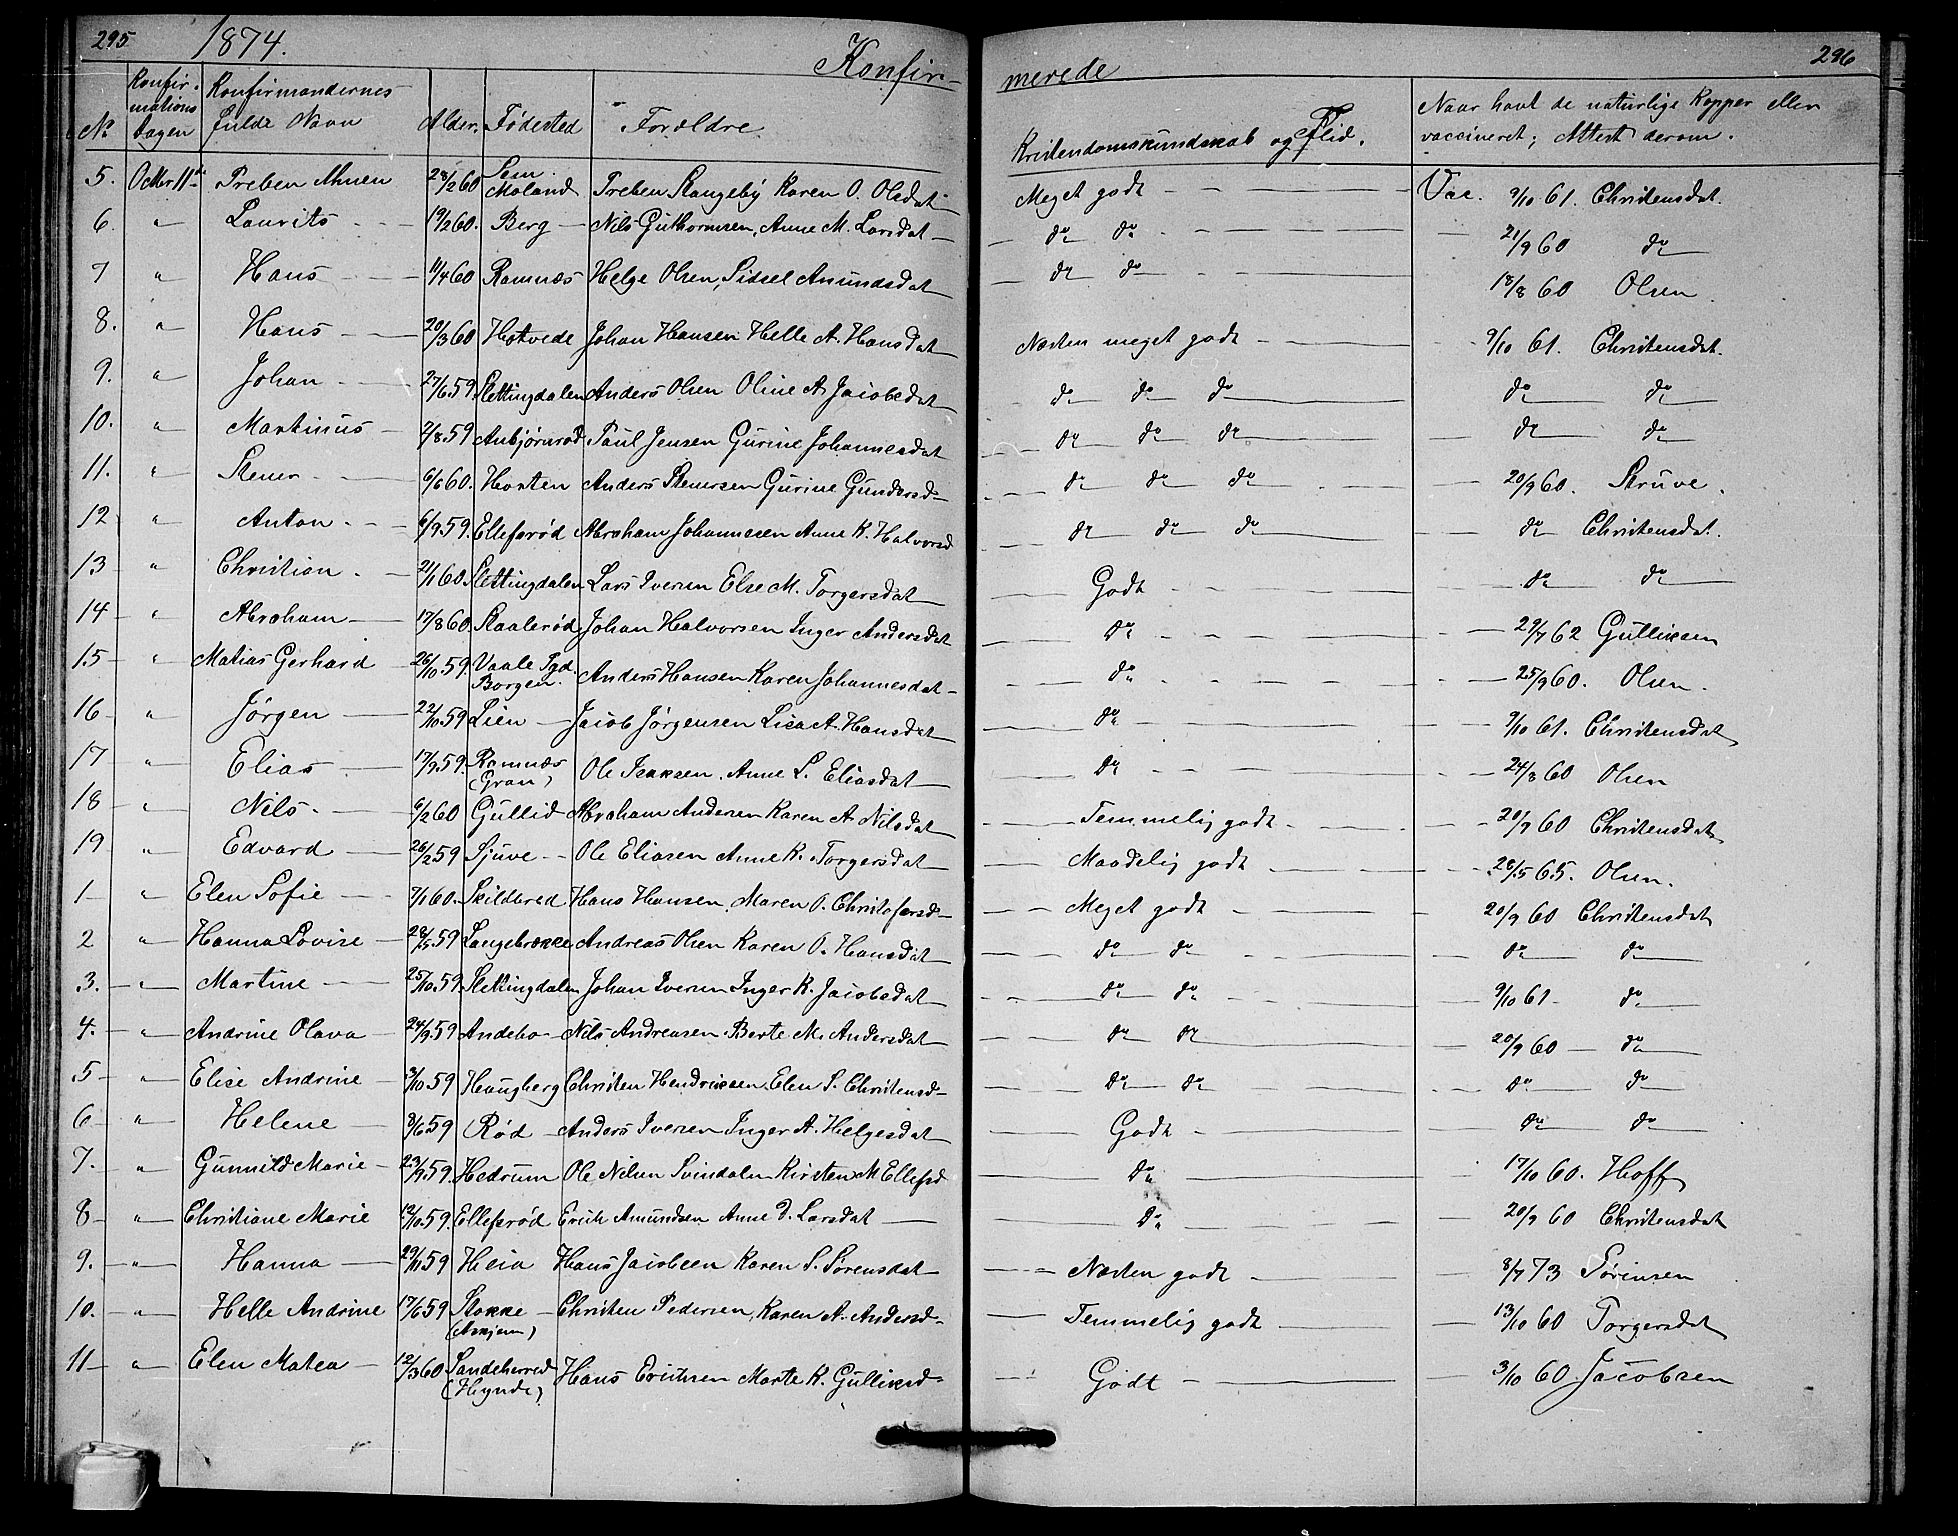 295 1874. Konfir- merede 296
No Konfirmations Dagen Konfirmandernes fulde Navn Alder. Fødested Forældre. Kristendomskundskab og Flid. Naar havt de naturlige Kopper eller vaccineret; Attest derom.
5. Octbr 11te Preben 28/2 60 Sem. Moland Preben Karen O. Olsdat Meget godt Vac. 9/10 61. Christensdat.
6. " Laurits 19/2 60. Berg Nils Guthormsen, Anne M. Larsdat do do 21/9 60 do
7 " Hans 11/4 60 Ramnæs Helge Olsen, Sidsel Amundsdat do do 18/8 60 Olsen.
8. " Hans 20/3 60 Hotvede Johan Hansen Helle A. Hansdat Næsten meget godt 9/10 61. Christensdat.
9. " Johan 27/6 59. Slettingdalen Anders Olsen Oline A. Jacobsdat do do do do do
10. " Martinus 2/8 59 Anbjørnrød Paul Jensen Gurine Johannesdat do do do do do
11. " Stener 6/6 60. Horten Anders Stenersen Gurine Gundersd do do do 20/9 60. Struve.
12 " Anton 6/9 59. Ellefsrød Abraham Johannesen Anne K. Halvorsd do do do do Christensdat.
13 " Christian 2/1 60. Slettingdalen Lars Iversen Else M. Torgersdat Godt do do
14 " Abraham 17/8 60. Skaalerød Johan Halvorsen Inger Andersdat do 29/7 62 Gulliksen
15 " Matias Gerhard 26/10 59. Vaale Pgd. Borgen. Anders Hansen Karen Johannesdat do 25/9 60. Olsen.
16 " Jørgen 22/10 59 Lien Jacob Jørgensen Lisa A. Hansdat do 9/10 61. Christensdat
17 " Elias 17/9 59. Ramnæs (Gran) Ole Isaksen. Anne L. Eliasdat do 24/8 60 Olsen
18 " Nils 6/2 60 Gullid Abraham Andersen Karen A. Nilsdat Temmelig godt 20/9 60 Christensdat
19 " Edvard 26/2 59 Sjuve Ole Eliasen Anne K. Torgersdat Maadelig godt 28/5 65. Olsen.
1 " Elen Sofie 7/1 60. Skildbred Hans Hansen, Maren O. Christofersd Meget godt 20/9 60 Christensdat
2 " Hanna Lovise 28/5 59 Langebrække Andreas Olsen Karen O. Hansdat do do do do
3. " Martine 25/10 59. Slettingdalen Johan Iversen Inger K. Jacobsdat do do 9/10 61 do
4. " Andrine Olava 24/9 59 Andebo Nils Andreasen Berte M. Andersdat do do 20/9 60 do
5 " Elise Andrine 3/10 59 Haugberg Christen Hendriksen Elen S. Christensd do do do do
6 " Helene 3/6 59 Rød Anders Iversen Inger A. Helgesdat Godt do do
7. " Gunnild Marie 23/9 59. Hedrum Ole Nilsen Svindalen Kirsten M Ellefsd do 17/10 60. Hoff
8 " Christiane Marie 12/10 59. Ellefsrød Erich Amundsen Anne D. Larsdat do 20/9 60 Christensdat
9. " Hanna 29/11 59 Heia Hans Jacobsen Karen S. Sørensdat Næsten godt 8/7 73 Sørinsen
10. " Helle Andrine 17/6 59 Stokke (Askjem) Christen Pedersen, Karen A. Andersd Temmelig godt 13/10 60 Torgersdat
11 " Elen Matea 12/3 60 Sandeherred (Hynde) Hans Erichsen Marte K. Gulliksd Godt 3/10 60. Jacobsen